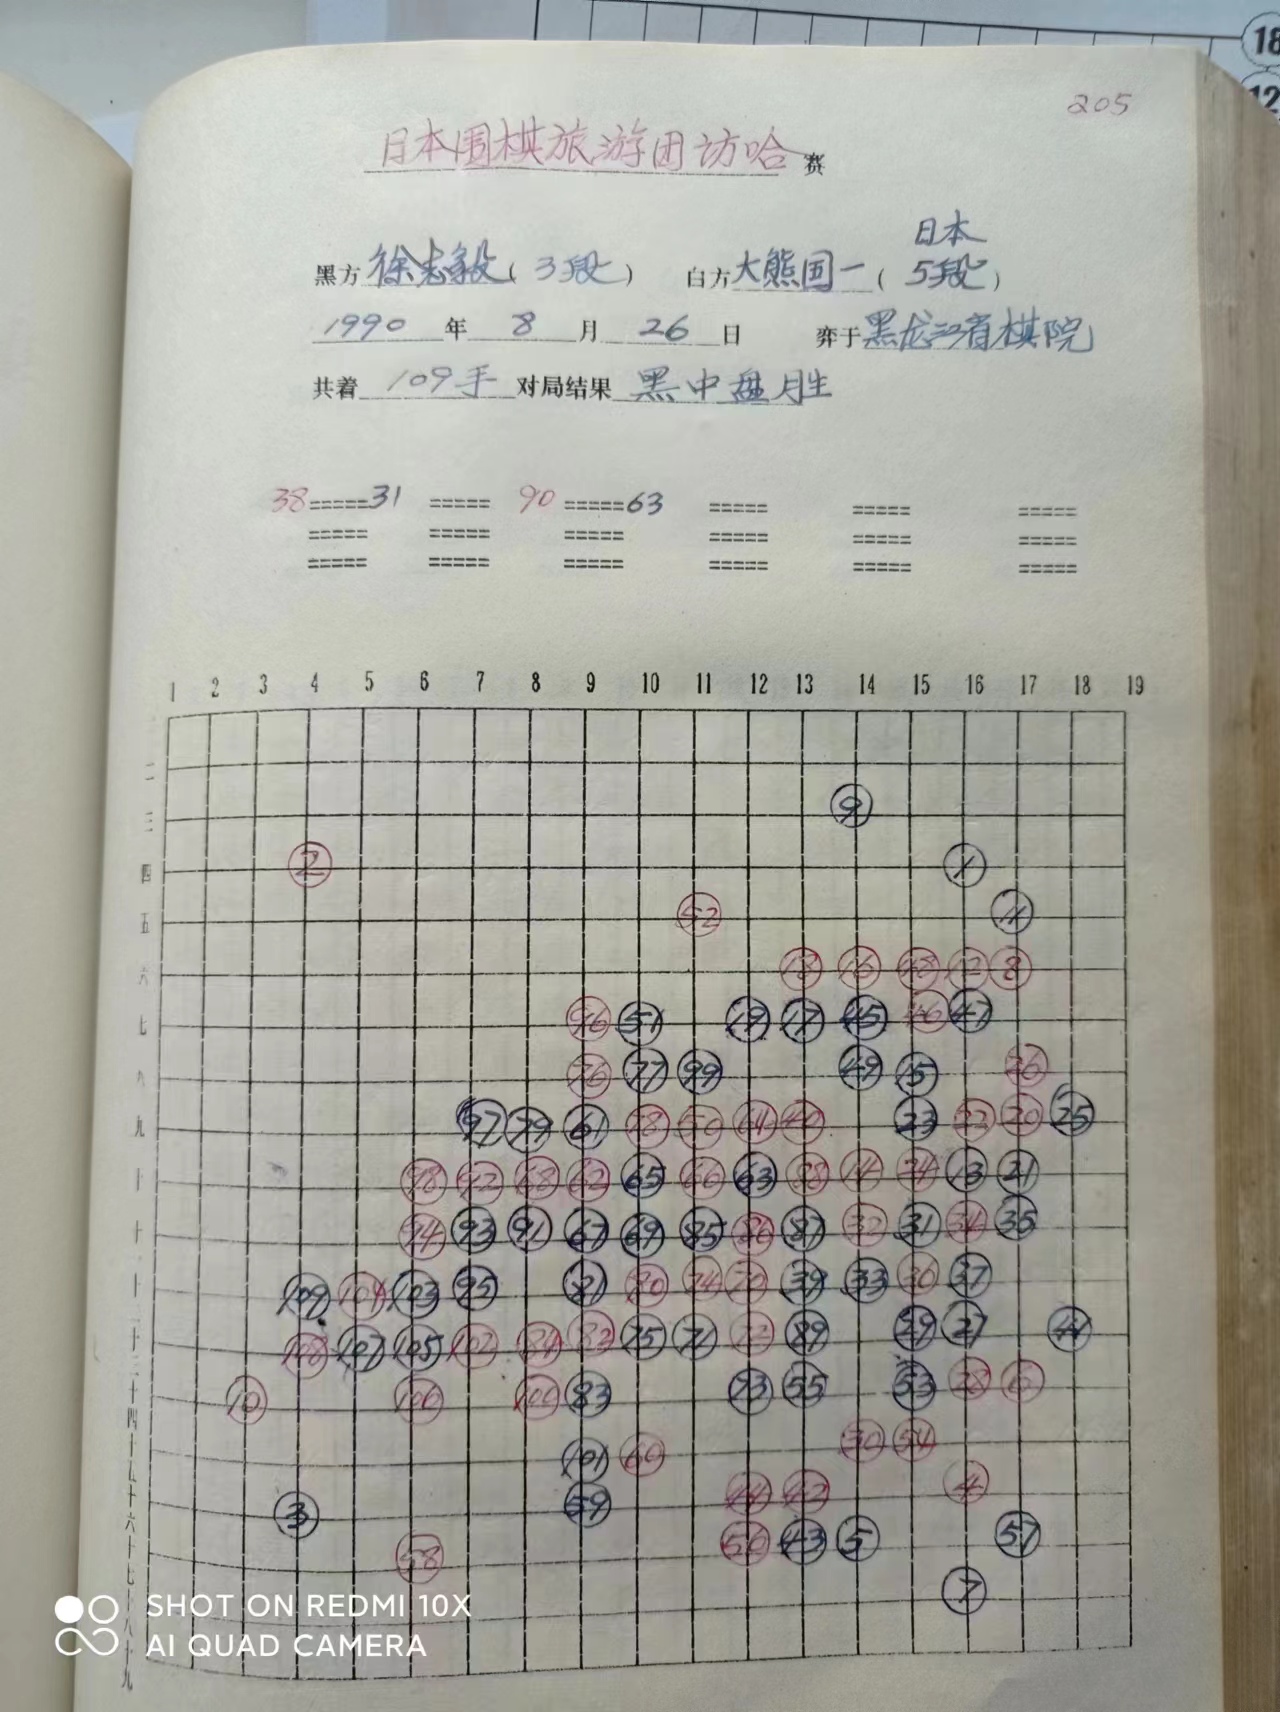 18
12
205
日本围棋旅游团访哈赛
日本
黑方徐志毅(3段) 白方大熊国一(5段)
1990年8月26日 弈于黑龙江省棋院
共着109手 对局结果黑中盘胜
38=====31 ===== 90=====63 ===== ===== =====
===== ===== ===== ===== ===== =====
===== ===== ===== ===== ===== =====
1 2 3 4 5 6 7 8 9 10 11 12 13 14 15 16 17 18 19
二
三 9
四 2 1
五 52 11
六 18 16 48 12 8
七 96 51 19 17 45 46 47
八 76 77 99 49 15 26
九 97 79 61 78 50 64 40 23 22 20 25
十 98 92 68 62 65 66 63 88 14 24 13 21
十一 94 93 91 67 69 85 86 87 32 31 34 35
十二 109 104 103 95 81 80 74 70 39 33 36 37
十三 108 107 105 102 84 82 75 71 72 89 29 27 41
十四 10 106 100 83 73 55 53 28 6
十五 101 60 30 54
十六 3 59 44 42 4
十七 58 56 43 5 57
十八 7
十九
SHOT ON REDMI 10X
AI QUAD CAMERA